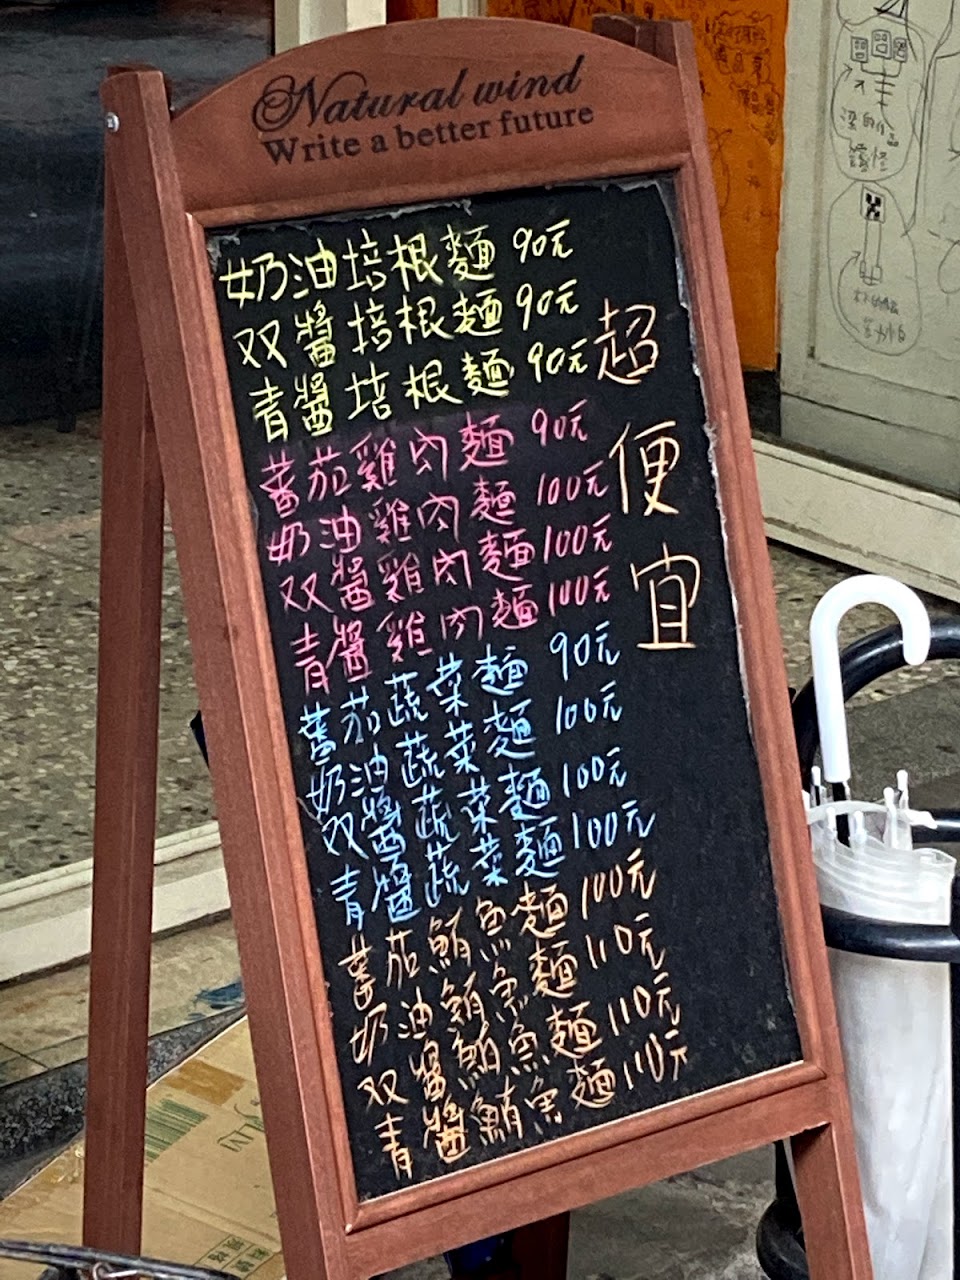 Natural wind
Write a better future
奶油培根麵 90元
双醬培根麵 90元
青醬培根麵 90元
蕃茄雞肉麵 90元
奶油雞肉麵 100元
双醬雞肉麵 100元
青醬雞肉麵 100元
蕃茄蔬菜麵 90元
奶油蔬菜麵 100元
双醬蔬菜麵 100元
青醬蔬菜麵 100元
蕃茄鮪魚麵 100元
奶油鮪魚麵 110元
双醬鮪魚麵 110元
青醬鮪魚麵 110元
超便宜